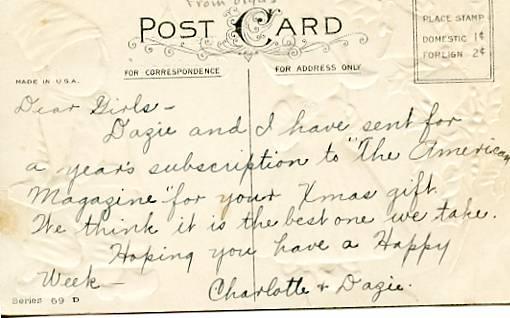 From
POST CARD
PLACE STAMP
DOMESTIC 1¢
FORIGN 2¢
MADE IN U.S.A.
FOR CORRESPONDENCE
FOR ADDRESS ONLY
Dear Girls-
Dazie and I have sent for
a year's subscription to "The American
Magazine" for your Xmas gift.
We think it is the best one we take.
Hoping you have a Happy
Week-
Charlotte & Dazie.
Series 69 D